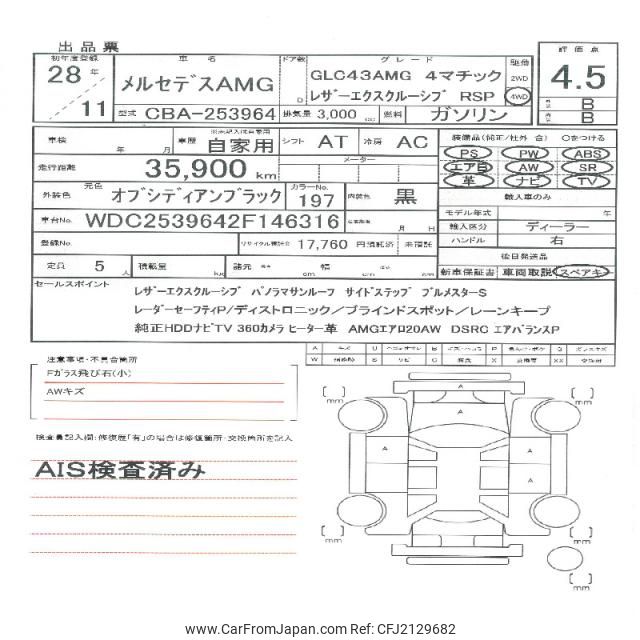 出品票
初年度登録 車名 ドア数 グレード 駆動 評価点
28年 メルセデスAMG D GLC43AMG 4マチック 2WD 4.5
11 レザーエクスクルーシブ RSP 4WD B
型式 CBA-253964 排気量 3,000 cc 燃料 ガソリン B
車検 年 月 車歴 自家用 シフト AT 冷房 AC 装備品(純正/社外 含) ○をつける
走行距離 35,900 km メーター PS PW ABS
エアB AW SR
革 ナビ TV
外装色 元色 オブシディアンブラック カラーNo. 197 内装色 黒 輸入車のみ
モデル年式 年
車台No. WDC2539642F146316 月 日 輸入区分 ディーラー
登録No. リサイクル預託金 17,760 円預託済 未預託 ハンドル 右
後日発送品
定員 5 人 積載量 kg 諸元 長さ cm 幅 cm 高さ cm 新車保証書 車両取説 スペアキー
セールスポイント
レザーエクスクルーシブ パノラマサンルーフ サイドステップ ブルメスターS
レーダーセーフティP/ディストロニック/ブラインドスポット/レーンキープ
純正HDDナビTV 360カメラ ヒーター革 AMGエアロ20AW DSRC エアバランスP
注意事項・不具合箇所
Fガラス飛び石(小)
AWキズ
検査員記入欄:修復歴「有」の場合は修復箇所・交換箇所を記入
AIS検査済み
[ ] mm
[ ] mm
A
A
A
A
[ ] mm
[ ] mm
[ ] mm
© CarFromJapan.com Ref: CFJ2129682